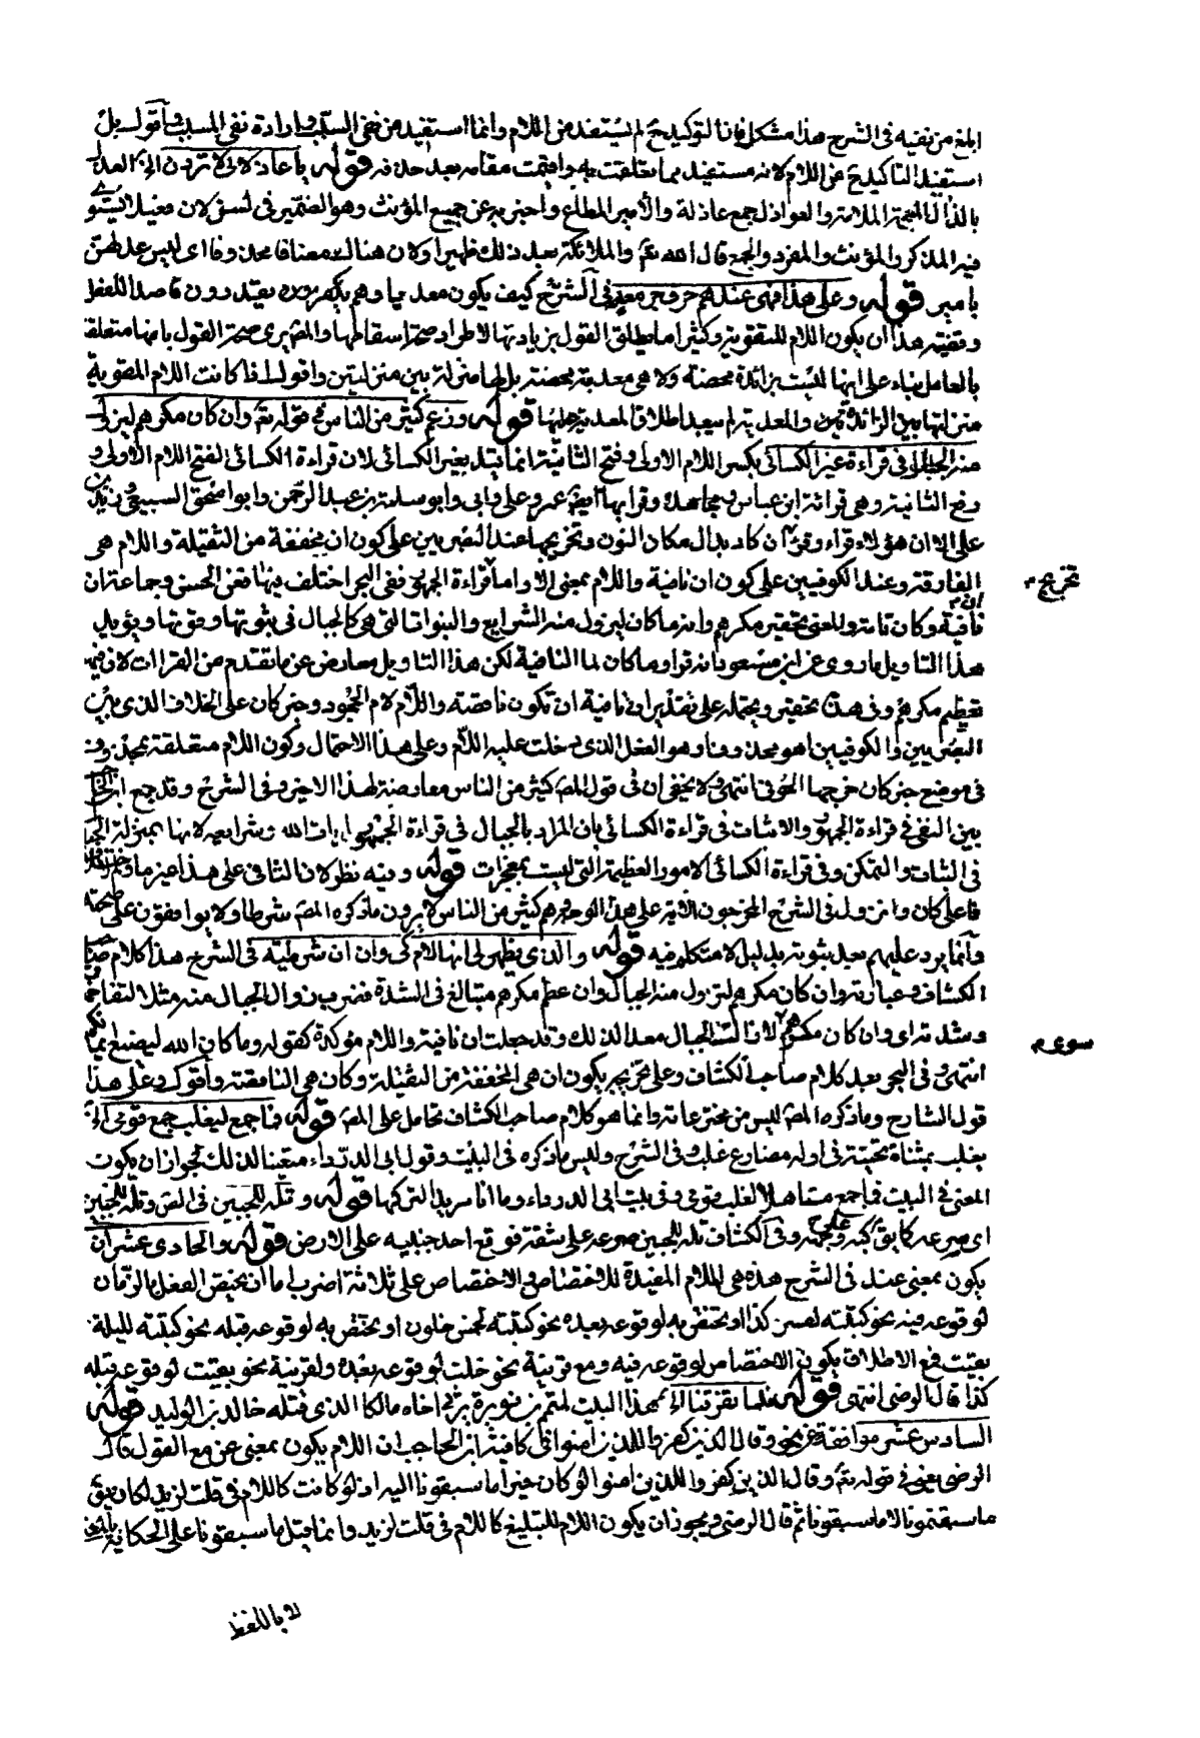 ابلغ من نفيه في الشرح هذا مشكل فان التوكيد ح لم يستفد من اللام وانما استفيد من نفي السبب وارادة نفي المسبب واقول بل
استفيد التاكيد ح من اللام لانه مستفيد مما تعلقت به واقيمت مقامه بعد حذفه قوله يا عاذلاتي لا تردن الخ العذل
بالذال المعجمة الملامة والعواذل جمع عاذلة والأمير المطاع واخبر به عن جميع المؤنث وهو الضمير في لسن لان فعيلا يستوي
فيه المذكر والمؤنث والمفرد والجمع قال الله تع والملائكة بعد ذلك ظهير او لان هناك مضافا محذوفا اي ليس عذلهن
بامير قوله وعلى هذا فهي عندهم حرف جر معد في الشرح كيف يكون معديا وهم يقيد دون قاصد اللفظ
وقضية هذا ان يكون اللام للتقوية وكثيرا ما يطلق القول بزيادتها لاطراد صحة اسقاطها والمص يرى صحة القول بانها متعلقة
بالعامل بناء على انها ليست بزائدة محضة ولا هي معدية محضة بل لها منزلة بين منزلتين واقول اذا كانت اللام المقوية
منزلتها بين الزائدة والمعدية لم يبعد اطلاق المعدية عليها قوله وزعم كثير من الناس في قوله تع وان كان مكرهم لتزول
منه الجبال في قراءة غير الكسائي بكسر اللام الاولى وفتح الثانية انما قيد بغير الكسائي لان قراءة الكسائي بفتح اللام الاولى و
رفع الثانية وهي قراءة ابن عباس ومجاهد وقرا بها ايضا عمر وعلي وابي وابو سلمة بن عبد الرحمن وابو اسحق السبيعي وزيد بن
علي الا ان هؤلاء قراؤا وان كاد بدال مكان النون وتخريجها عند البصريين على كون ان مخففة من الثقيلة واللام هي
الفارقة وعند الكوفيين على كون ان نافية واللام بمعنى الا واما قراءة الجمهور ففي البحر اختلف فيها فعن الحسن وجماعة ان
تخريج م
نافية وكان تامة والمعنى تحقير مكرهم وانه ما كان لتزول منه الشرايع والنبوات التي هي كالجبال في ثبوتها وقوتها ويؤيد
هذا التاويل ما روي عن ابن مسعود انه قرا وما كان لما النافية لكن هذا التاويل معارض عن ما تقدم من القراات لان فيها
تعظيم مكرهم وفي هذا تحقير ويحتمل على تقدير ان نافية ان تكون ناقصة واللام لام الجحود وخبر كان على الخلاف الذي بين
البصريين والكوفيين اهو محذوف او هو الفعل الذي دخلت عليه اللام وعلى هذا الاحتمال وكون اللام متعلقة بمحذوف
في موضع خبر كان خرجها الحوفي انتهى ولا يخفى ان في قول المص كثير من الناس معارضة لهذا الاخير وفي الشرح وقد جمع
بين النفي في قراءة الجمهور والاثبات في قراءة الكسائي بان المراد بالجبال في قراءة الجمهور ايات الله وشرايعه لانها بمنزلة الجبال
في الثبات والتمكن وفي قراءة الكسائي الامور العظيمة التي ليست بمعجزات قوله وفيه نظر لان النافي على هذا غير ما ولم
فاعل كان وانزول في الشرح المخرجون الاية على هذا الوجه وهم كثير من الناس لا يرون ما ذكره المص شرطا ولا يوافقون على صحته
وانما يرد عليهم بعد ثبوته بدليل لا متكلم فيه قوله والذي يظهر لي انها لام كي وان ان شرطية في الشرح هذا كلام صاحب
الكشاف وعبارته وان كان مكرهم لتزول منه الجبال وان عظم مكرهم وتبالغ في الشدة فضرب زوال الجبال منه مثلا لتفاقمه
وشدته اي وان كان مكرهم لازالة الجبال معدا لذلك وقد جعلت ان نافية واللام مؤكدة كقوله وما كان الله ليضيع ايمانكم
سوى م
انتهى وفي البحر بعد كلام صاحب الكشاف وعلى تخريجه يكون ان هي المخففة من الثقيلة وكان هي الناقصة واقول وعلى هذا
قول الشارح وما ذكره المص ليس من مخترعاته وانما هو كلام صاحب الكشاف تحامل على المص قوله فما جمع ليغلب جمع قومي الخ
يغلب بمثناة تحتية في اوله مضارع غلب وفي الشرح وليس ما ذكره في البيت وقول ابي الدرداء متعينا لذلك لجواز ان يكون
المعنى في البيت فما جمع متاهلا لغلب قومي وفي بيت ابي الدرداء وما انا مريدا لتركها قوله وتله للجبين في الق وتله للجبين
اي صرعه كما يق كبه لوجهه وفي الكشاف تله للجبين صرعه على شقه فوقع احد جنبيه على الارض قوله والحادي عشر ان
يكون بمعنى عند في الشرح هذه هي اللام المفيدة للاختصاص والاختصاص على ثلاثة اضرب اما ان يختص الفعل بالزمان
لوقوعه فيه نحو كتبته لغرة كذا او يختص به لوقوعه بعده نحو كتبته لخمس خلون او يختص به لوقوعه قبله نحو كتبته لليلة
بقيت فمع الاطلاق يكون الاختصاص لوقوعه فيه ومع قرينة نحو خلت لوقوعه بعده ولقرينة نحو بقيت لوقوعه قبله
كذا قال الرضي انتهى قوله فلما تفرقنا الخ هذا البيت لمتمم بن نويرة يرثي اخاه مالكا الذي قتله خالد بن الوليد قوله
السادس عشر موافقة عن نحو وقال الذين كفروا للذين امنوا في كافية ابن الحاجب ان اللام يكون بمعنى عن مع القول قال
الرضي يعني في قوله تع وقال الذين كفروا للذين امنوا لو كان خيرا ما سبقونا اليه اذ لو كانت كاللام في قلت لزيد لكان يق
ما سبقتمونا لا ما سبقونا ثم قال الرضي ويجوز ان يكون اللام للتبليغ كاللام في قلت لزيد وانما قيل ما سبقونا على الحكاية بالمعنى
لا باللفظ